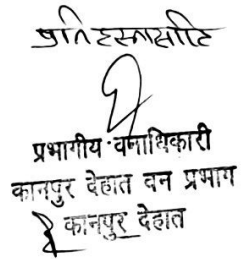 प्रतिहस्ताक्षरित
प्रभागीय वनाधिकारी
कानपुर देहात वन प्रभाग
कानपुर देहात